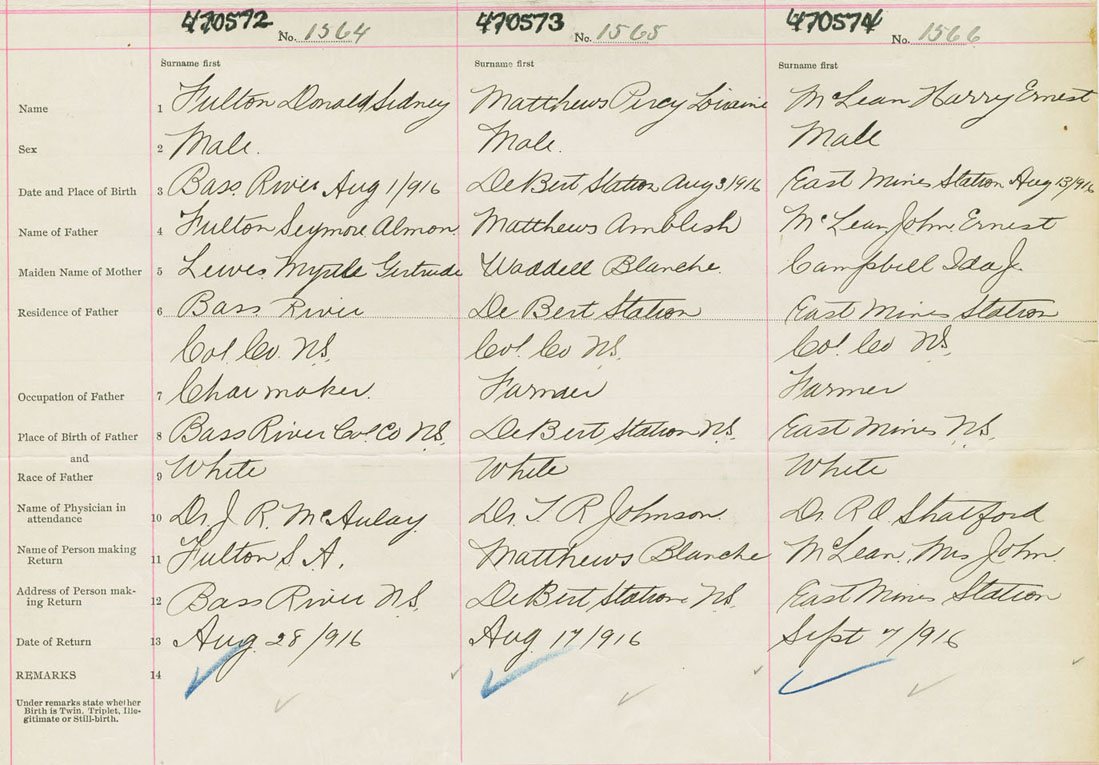 470572 No. 1564 470573 No. 1565 470574 No. 1566
Surname first Surname first Surname first
Name 1 Fulton Donald Sidney Matthews Percy McLean Harry Ernest
Sex 2 Male. Male. Male
Date and Place of Birth 3 Bass River Aug 1/916 DeBert Station Aug 3/916 East Mines Station Aug 13/916
Name of Father 4 Fulton Seymore Almon. Matthews McLean John Ernest
Maiden Name of Mother 5 Lewis Myrtle Gertrude Waddell Blanche. Campbell Ida J.
Residence of Father 6 Bass River De Bert Station East Mines Station
Col. Co. N.S. Col. Co N.S. Col. Co N.S.
Occupation of Father 7 Chair maker. Farmer Farmer
Place of Birth of Father 8 Bass River Col Co N.S. DeBert Station N.S. East Mines N.S.
and
Race of Father 9 White White White
Name of Physician in
attendance 10 Dr. J. R. McAulay Dr. T. R Johnson. Dr. R.O. Shatford
Name of Person making
Return 11 Fulton S. A. Matthews Blanche McLean. Mrs John.
Address of Person mak-
ing Return 12 Bass River N.S. DeBert Station N.S. East Mines Station
Date of Return 13 Aug 28/916 Aug 17/916 Sept 7/916
REMARKS 14
Under remarks state whether
Birth is Twin. Triplet, Ille-
gitimate or Still-birth.